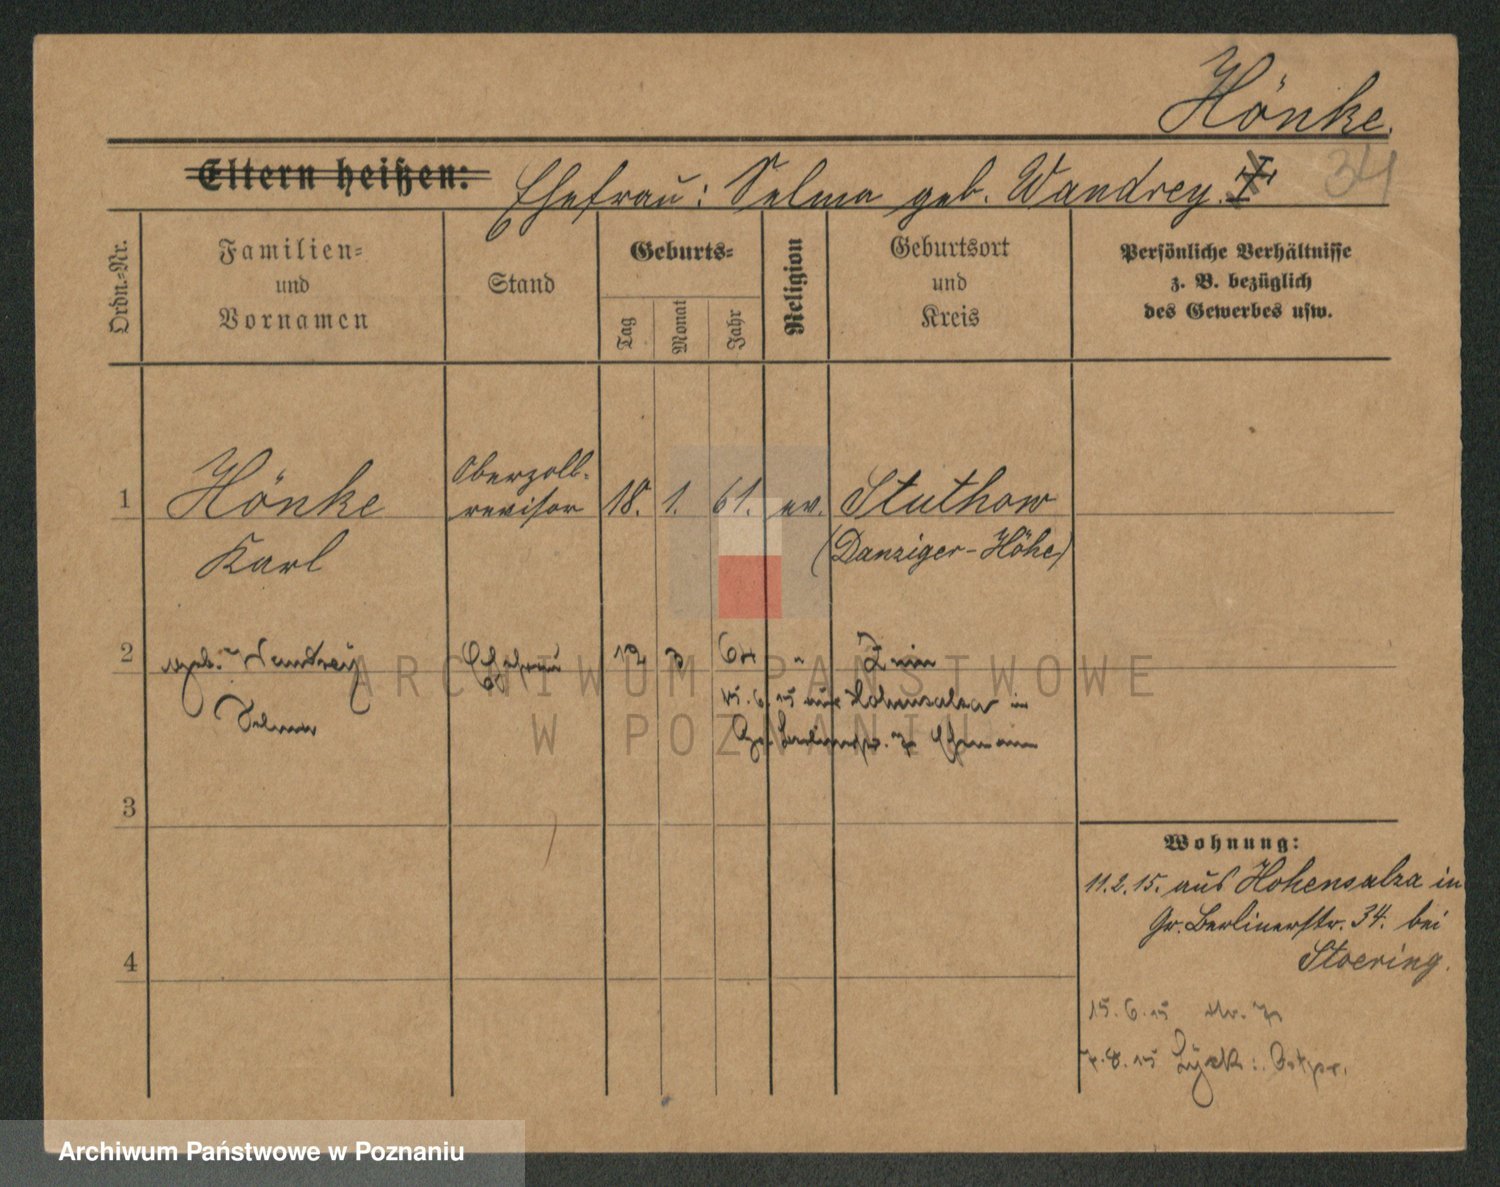 Hönke.
Eltern heißen: Ehefrau: Selma geb. Wandrey. I
34
Ordn.-Nr.
Familien- und Vornamen
Stand
Geburts-
Tag
Monat
Jahr
Religion
Geburtsort und Kreis
Persönliche Verhältnisse
z. B. bezüglich
des Gewerbes usw.
1 Hönke Oberzoll- 18. 1. 61. ev. Stuthow
Karl revisor (Danziger-Höhe)
2 geb. Wandrey Ehefrau 64 " Znin
Selma
15.6.15 aus Hohensalza in
Gr. Berlinerstr. Ehemann
3
4
Wohnung:
11.2.15. aus Hohensalza in
Gr. Berlinerstr. 34. bei
Stoering.
15.6.15
7.8.15 Lyck: Ostpr.
ARCHIWUM PAŃSTWOWE
W POZNANIU
Archiwum Państwowe w Poznaniu